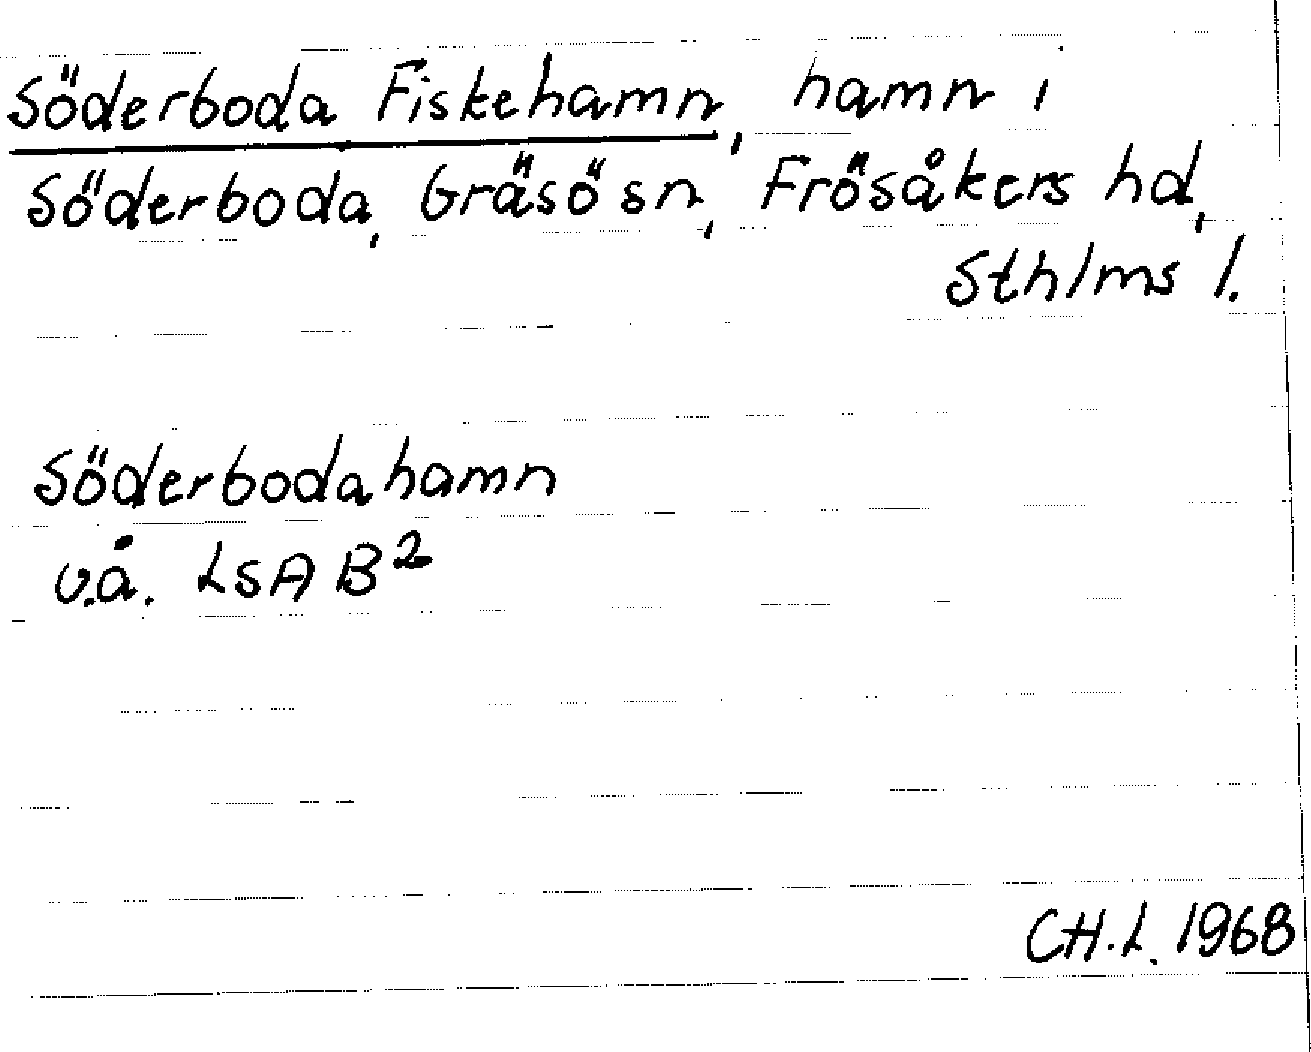 Söderboda Fiskehamn, hamn i
Söderboda, Gräsö sn, Frösåkers hd,
Sthlms l.
Söderbodahamn
u.å. LSA B²
CH.L. 1968